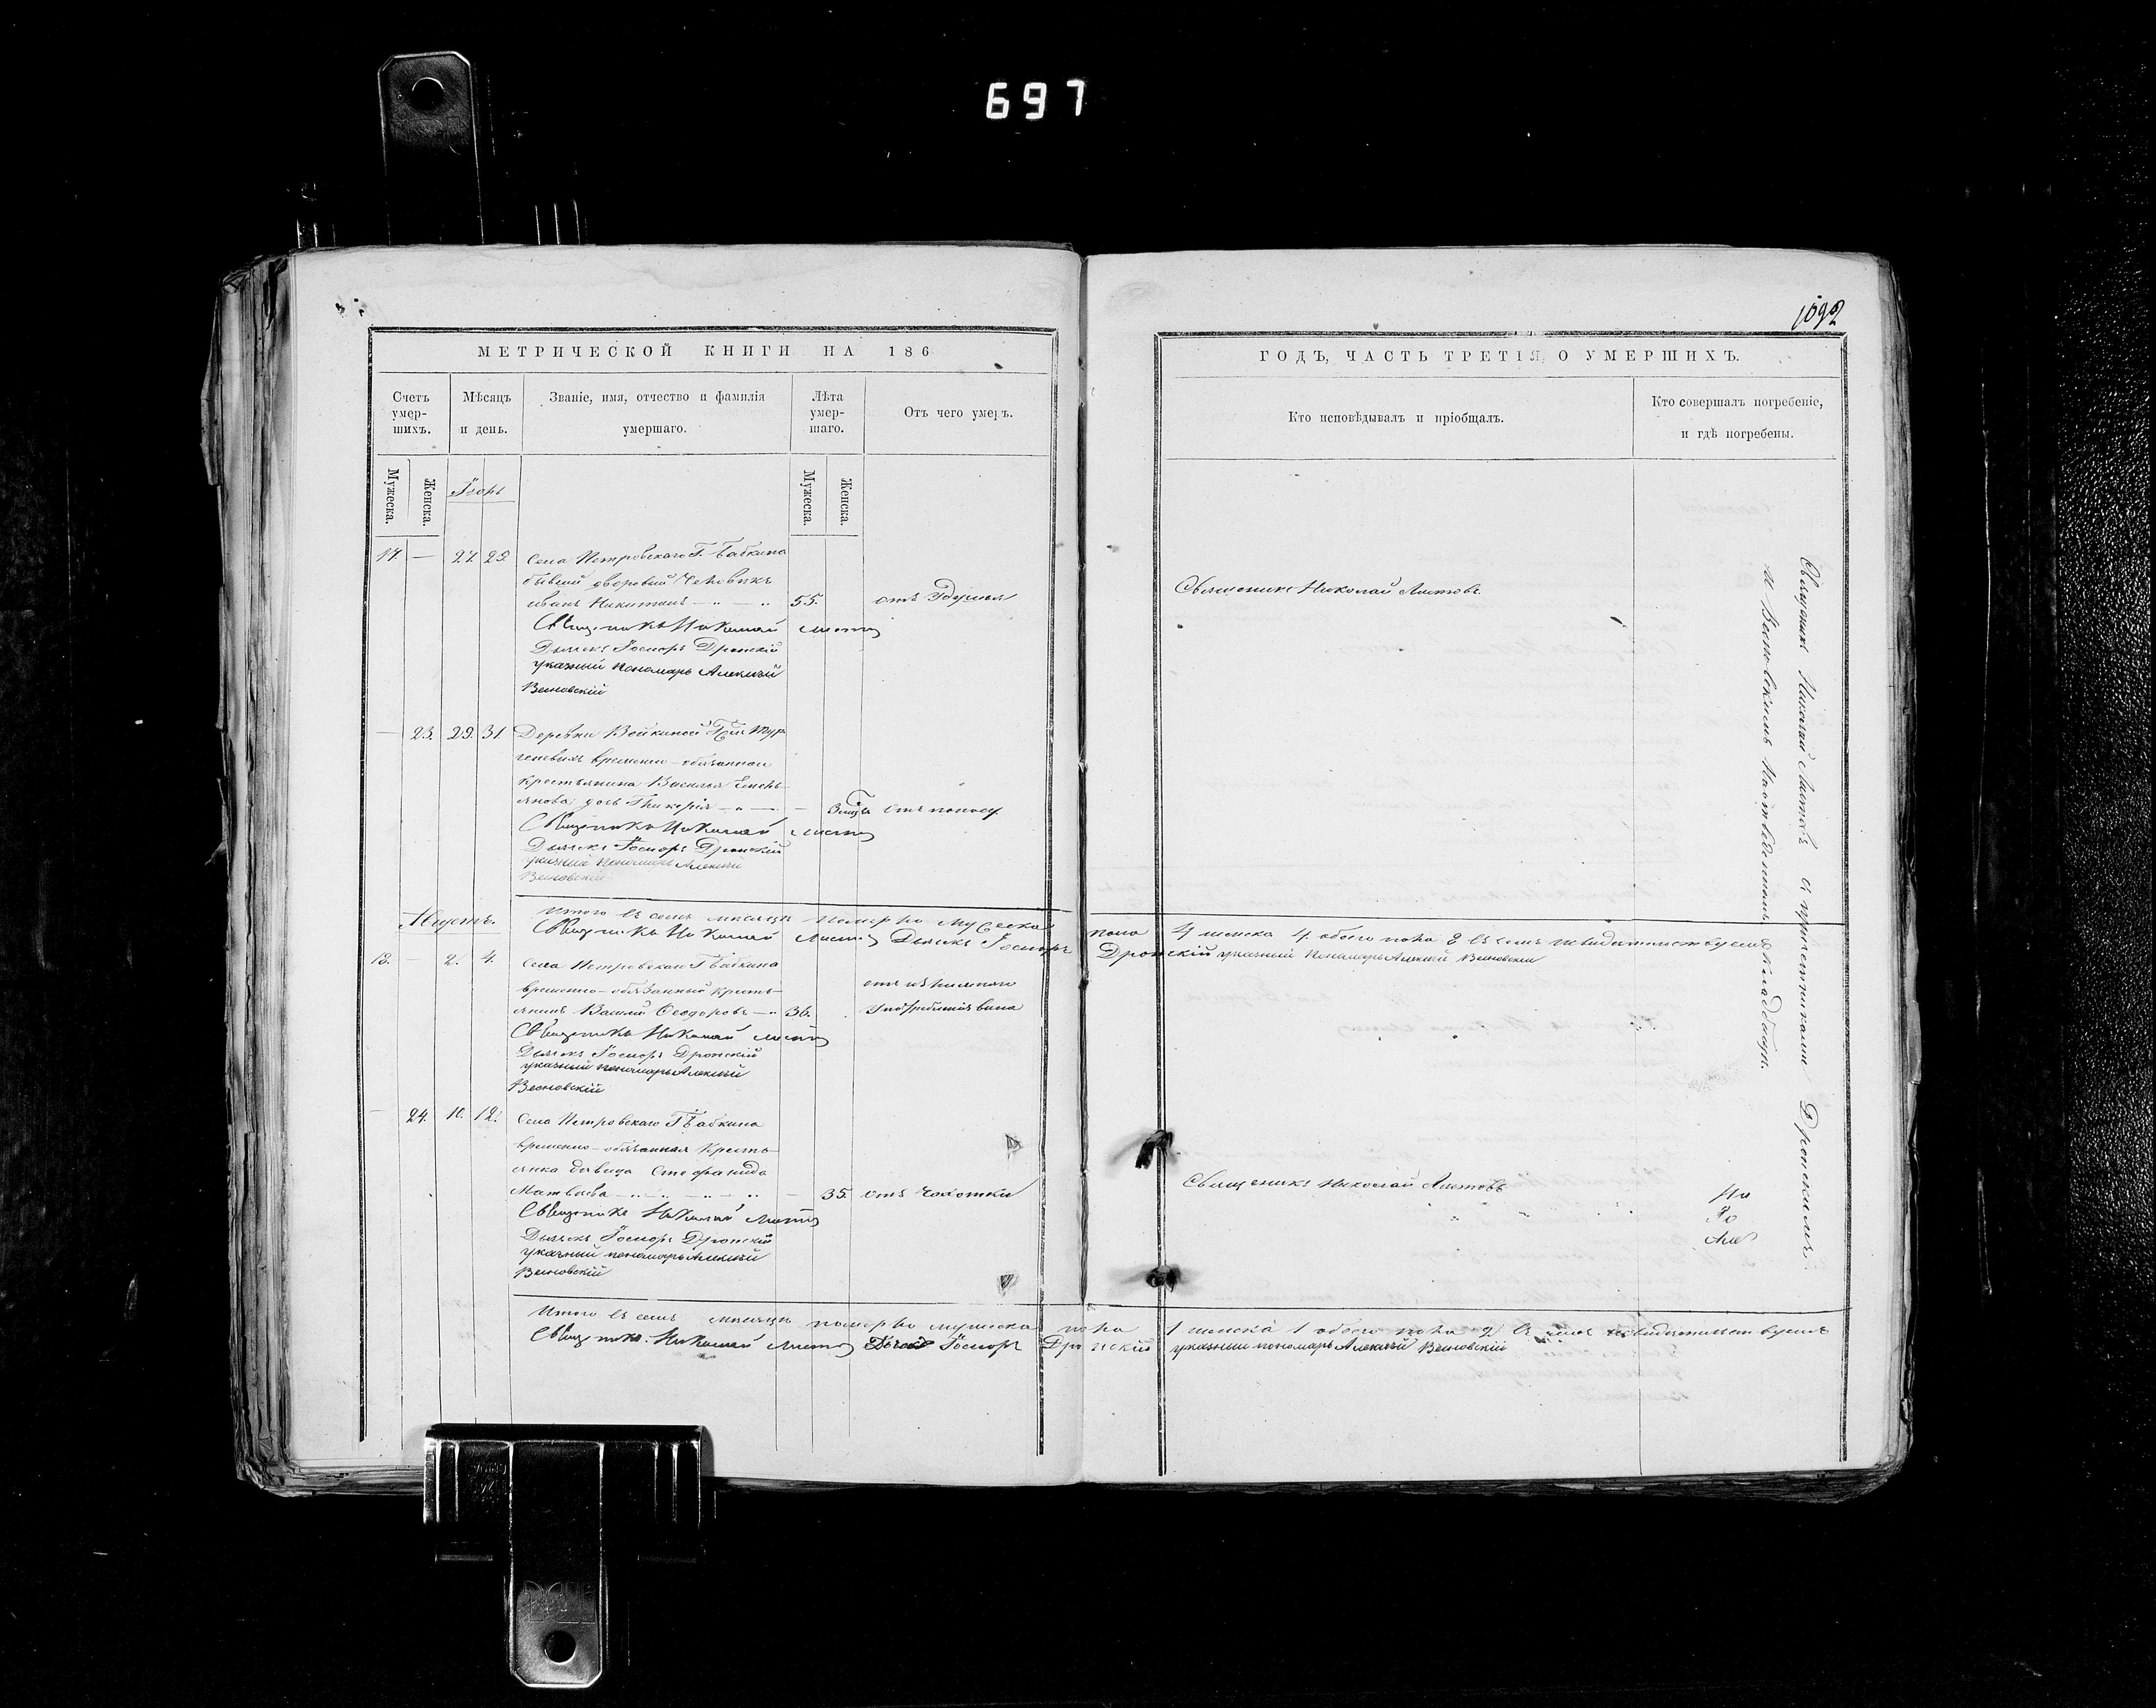 697
1092
МЕТРИЧЕСКОЙ КНИГИ НА 186
Счетъ умер-шихъ.
Мѣсяцъ и день.
Званіе, имя, отчество и фамилія умершаго.
Лѣта умер-шаго.
Отъ чего умеръ.
Мужеска.
Женска.
Мужеска.
Женска.
17. — 27. 29. Села Петровскаго Г. Бабкина
бывшій дворовый человѣкъ
Иванъ Никитинъ 55. отъ удушья
Священникъ Николай Листовъ
Дьячекъ Дронскій
указный пономарь Алексѣй
Весновскій
— 23. 29. 31. Деревни Войкиной
временно-обязаннаго
крестьянина Василья Емель-
янова дочь Гликерія отъ поносу
Священникъ Николай Листовъ
Дьячекъ Дронскій
указный пономарь Алексѣй
Весновскій
Итого въ семъ мѣсяцѣ померло мужеска пола 4 женска 4 обоего пола 8 въ чемъ и свидѣтельствуемъ
Священникъ Николай Листовъ Дьячекъ Дронскій указный пономарь Алексѣй Весновскій
Августъ.
13. — 2. 4. Села Петровскаго Г. Бабкина
временно-обязанный кресть-
янинъ Василій Ѳеодоровъ 36.
употребленія вина
Священникъ Николай Листовъ
Дьячекъ Дронскій
указный пономарь Алексѣй
Весновскій
— 24. 10. 12. Села Петровскаго Г. Бабкина
временно-обязанная кресть-
янка дѣвица Стефанида
Матвѣева 35. отъ чахотки
Священникъ Николай Листовъ
Дьячекъ Дронскій
указный пономарь Алексѣй
Весновскій
Итого въ семъ мѣсяцѣ померло мужеска пола 1 женска 1 обоего пола 2 въ чемъ и свидѣтельствуемъ
Священникъ Николай Листовъ Дронскій указный пономарь Алексѣй Весновскій
ГОДЪ, ЧАСТЬ ТРЕТІЯ, О УМЕРШИХЪ.
Кто исповѣдывалъ и пріобщалъ.
Кто совершалъ погребеніе, и гдѣ погребены.
Священникъ Николай Листовъ
Священникъ Николай Листовъ
Священникъ Николай Листовъ съ причетниками Дронскимъ
и Весновскимъ на отведенномъ кладбищѣ.